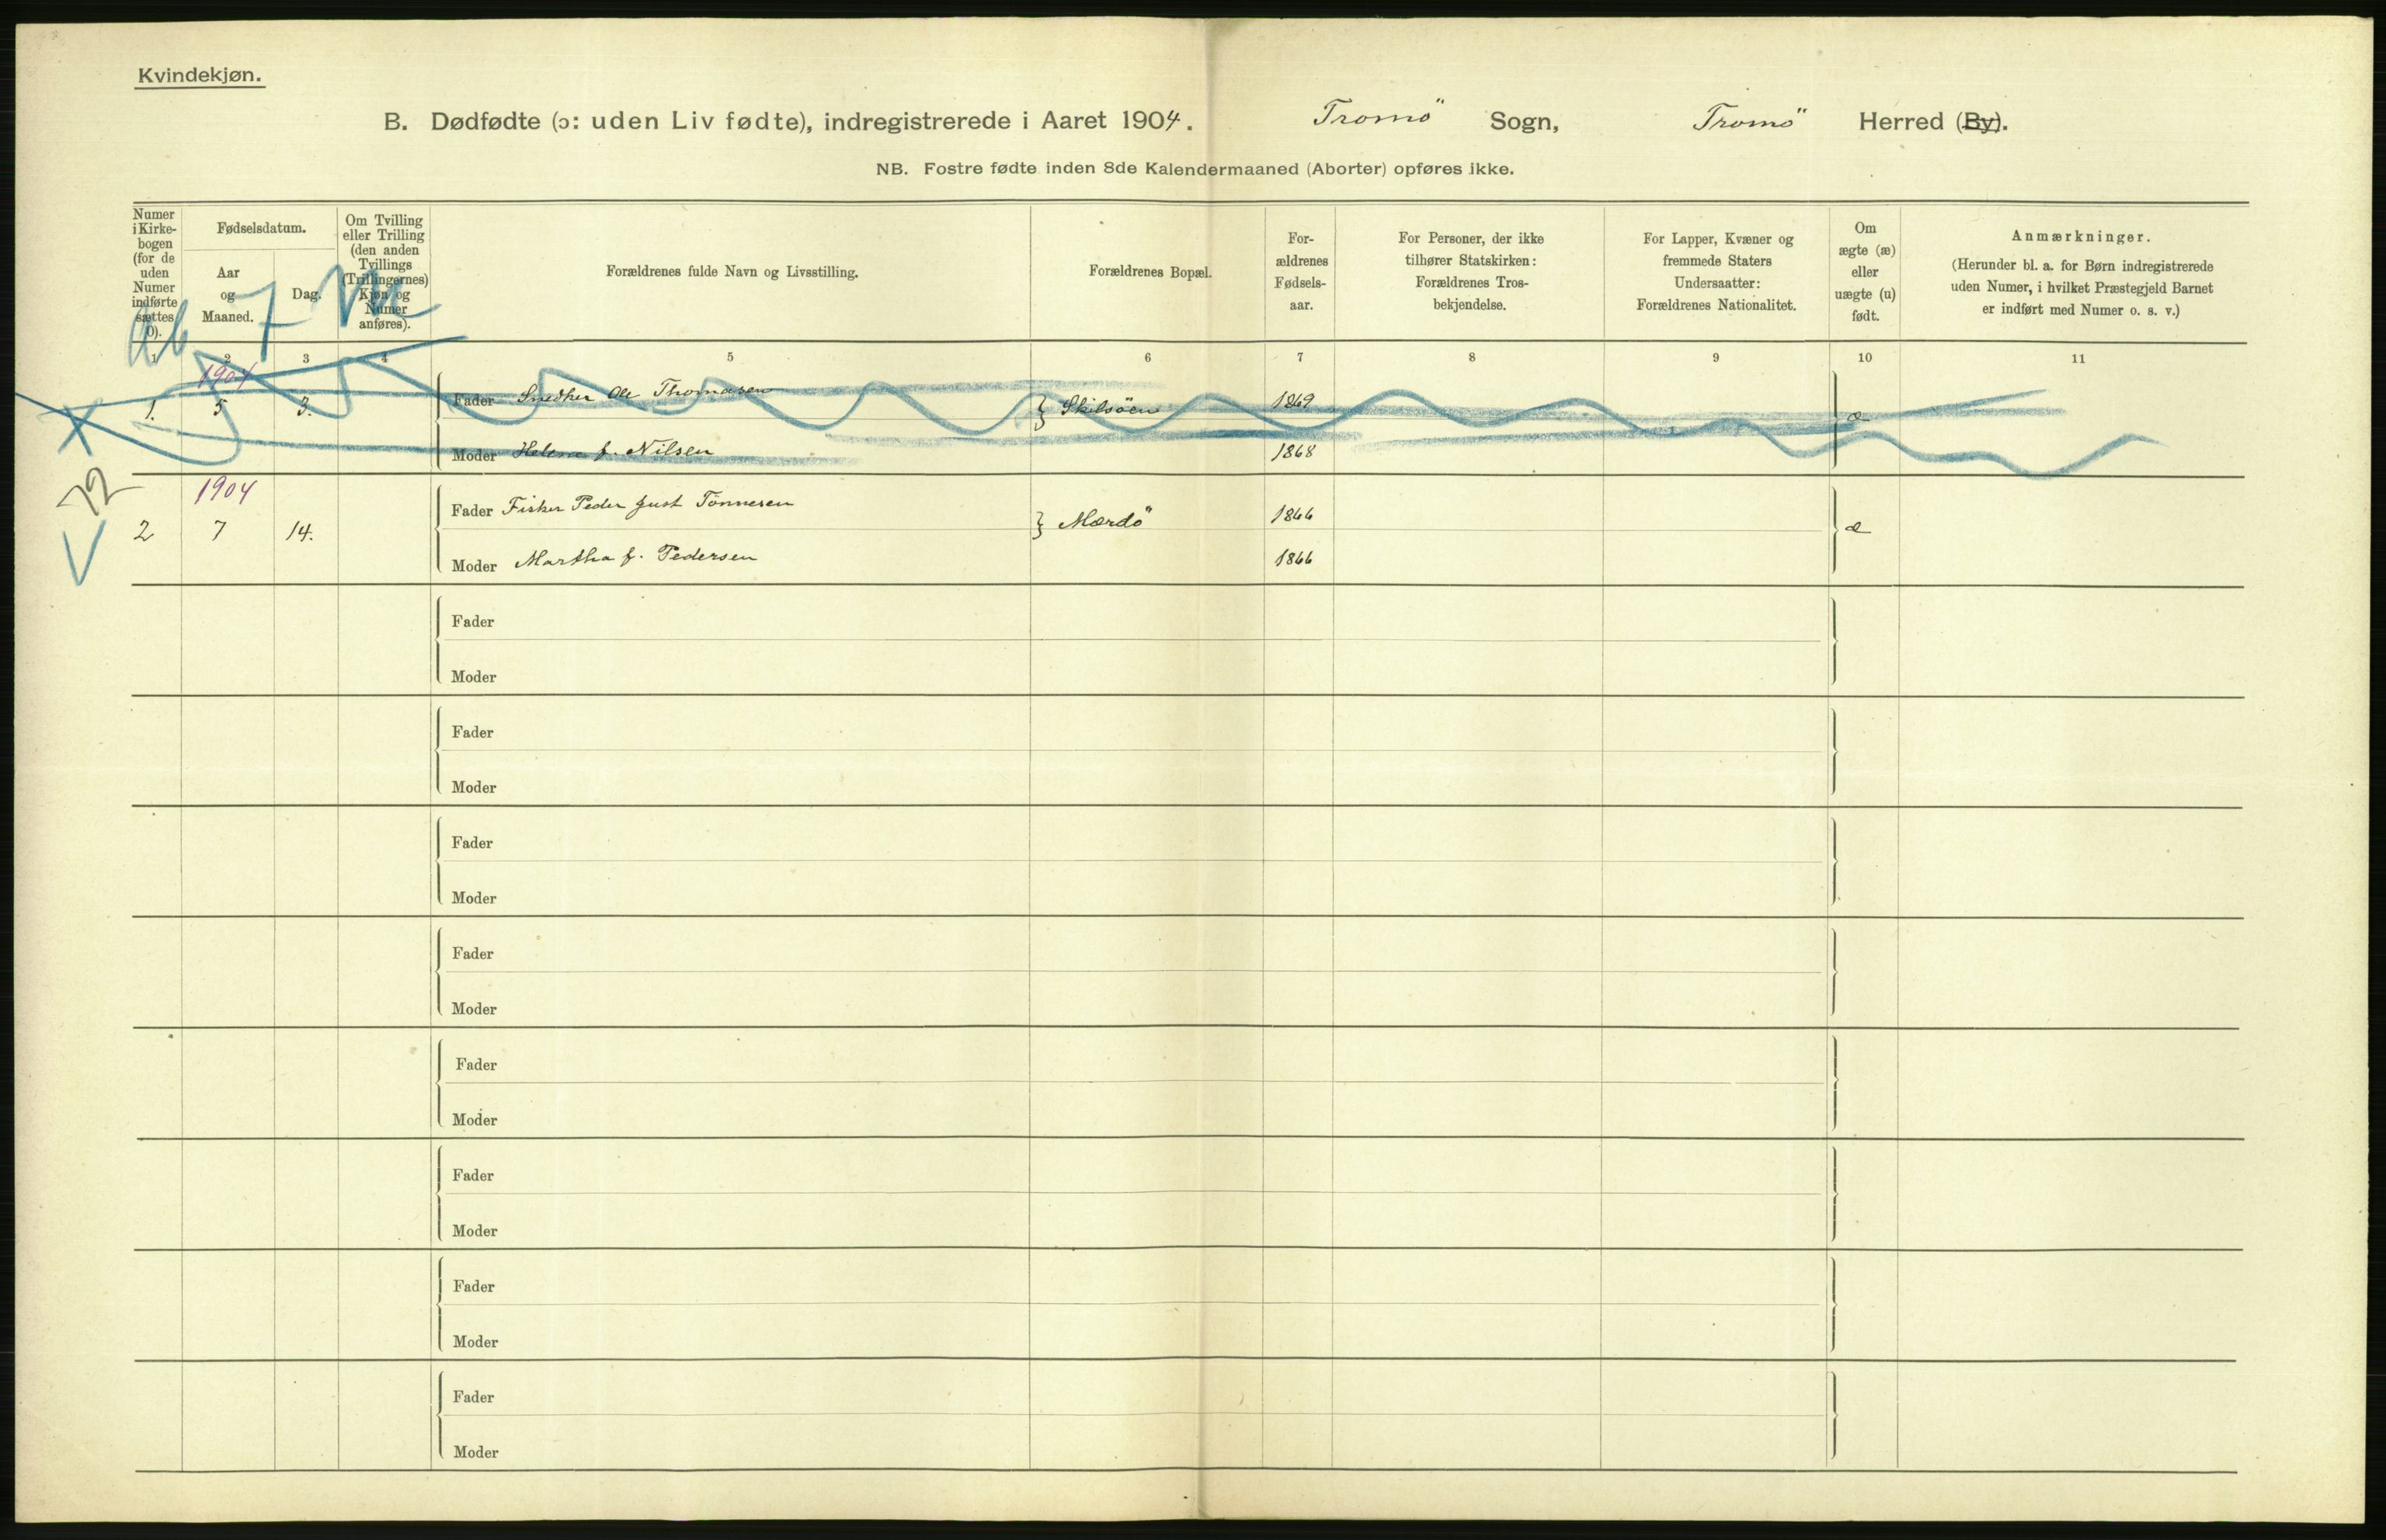 Kvindekjøn.
B. Dødfødte (ɔ: uden Liv fødte), indregistrerede i Aaret 1904. Tromö Sogn, Tromö Herred (By).
NB. Fostre fødte inden 8de Kalendermaaned (Aborter) opføres ikke.
Numer i Kirke-bogen (for de uden Numer indførte sættes 0).
Fødselsdatum.
Aar og Maaned.
Dag.
Om Tvilling eller Trilling (den anden Tvillings (Trillingernes) Kjøn og Numer anføres).
Forældrenes fulde Navn og Livsstilling.
Forældrenes Bopæl.
For-ældrenes Fødsels-aar.
For Personer, der ikke tilhører Statskirken: Forældrenes Tros-bekjendelse.
For Lapper, Kvæner og fremmede Staters Undersaatter: Forældrenes Nationalitet.
Om ægte (æ) eller uægte (u) født.
Anmærkninger.
(Herunder bl. a. for Børn indregistrerede uden Numer, i hvilket Præstegjeld Barnet er indført med Numer o. s. v.)
1 2 3 4 5 6 7 8 9 10 11
1904
1. 5 3. Fader Snedker Ole Thomasen } Skilsöen 1869 æ
Moder Helene f. Nilsen 1868
72
1904
2 7 14. Fader Fisker Peder Just Tönnesen } Mærdö 1866 æ
Moder Martha f. Pedersen 1866
Fader
Moder
Fader
Moder
Fader
Moder
Fader
Moder
Fader
Moder
Fader
Moder
Fader
Moder
Fader
Moder